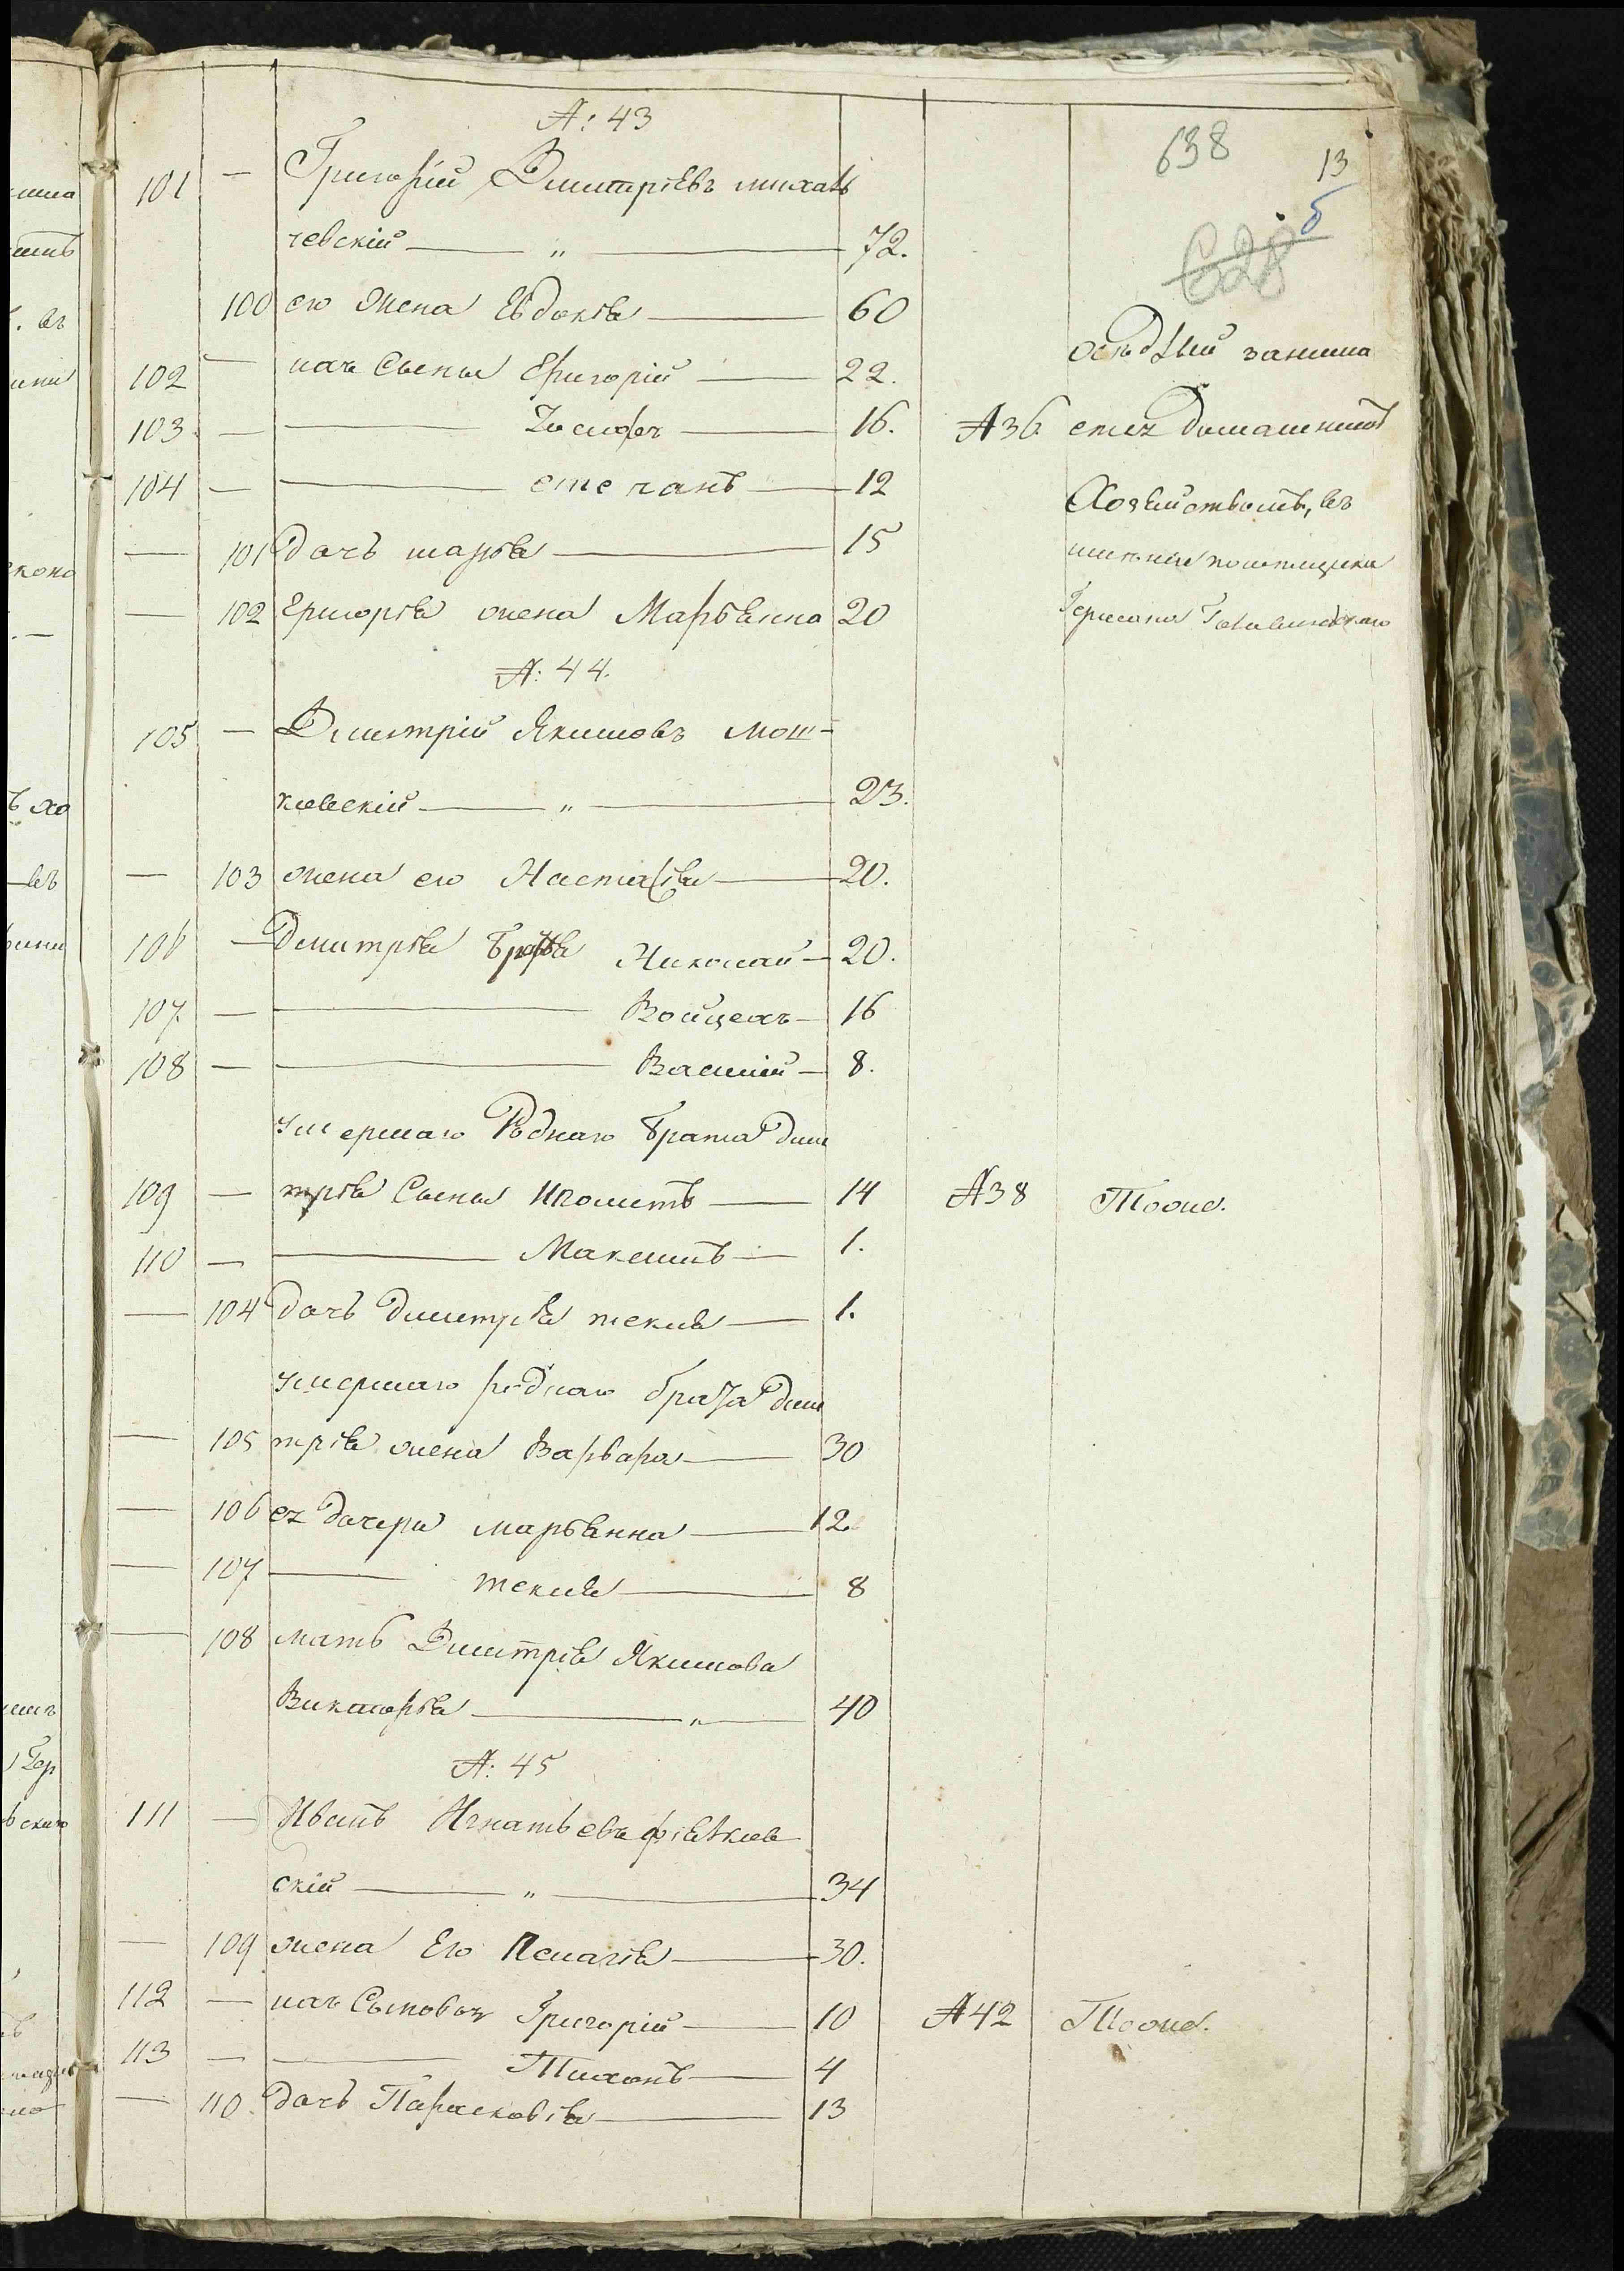 №: 43
638
13
101 — Григорій Дмитріевъ михаль
б
чевскій — „ — 72.
628
100 его жена Евдокія — 60
102 — ихъ Сыны Григорій — 22.
оседлый занима
103 — — Іосифъ — 16. №36. етсъ домашнимъ
104 — — степанъ — 12
Хозяйствомъ, въ
— 101 дочь марія — 15
имении помещика
— 102 Григорія жена Маріанна 20
№: 44.
105 — Дмитрій Якимовъ мош-
ковскій — „ — 23.
— 103 жена его Настасія — 20.
106 — Дмитрія Братья Николай — 20.
107. — — Войцехъ — 16
108 — — Василій — 8.
умершаго Роднаго брата дми
109 — трія Сыны — 14 №38 Тоже.
110 — — Максимъ — 1.
— 104 дочь дмитрія текля — 1.
умершаго роднаго брата дми
— 105 трія жена Варвара — 30
— 106 ея дочери маріанна — 12
— 107 — текля — 8
— 108 мать Дмитрія Якимова
Викторія — „ — 40
№: 45
111 — Иванъ Игнатьевъ
скій — „ — 34
— 109 жена Его Пелагія — 30.
112 — ихъ Сыновья Григорій — 10 №42 Тоже.
113 — — Тихонъ — 4
— 110. дочь Парасковія — 13